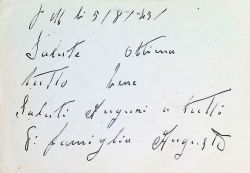 li 5/8/43/
Salute ottima
tutto bene
Saluti Auguri a tutti
Di famiglia Augusto